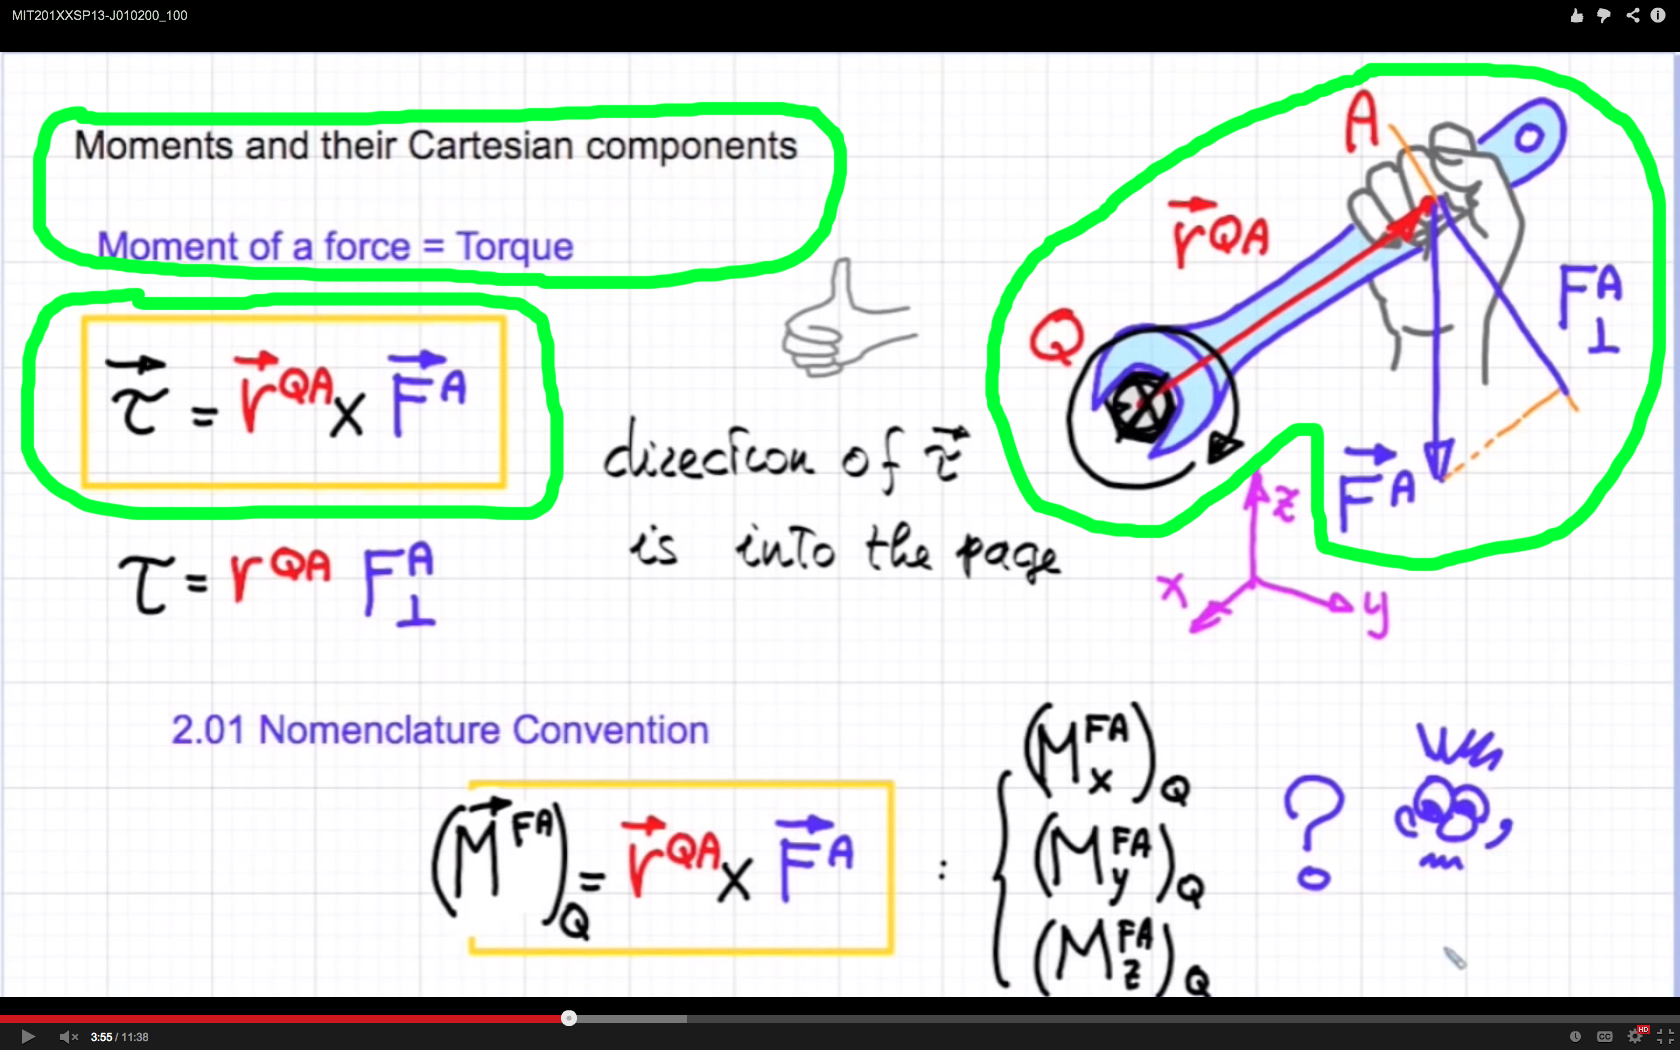 MIT201XXSP13-J010200_100
Moments and their Cartesian components
Moment of a force = Torque
τ⃗ = r⃗^QA x F⃗^A
τ = r^QA F_⊥^A
direction of τ⃗
is into the page
A
r⃗^QA
Q
F_⊥^A
F⃗^A
z
x
y
2.01 Nomenclature Convention
(M⃗^FA)_Q = r⃗^QA x F⃗^A : {
(M_x^FA)_Q
(M_y^FA)_Q
(M_z^FA)_Q
?
3:55 / 11:38
CC
HD